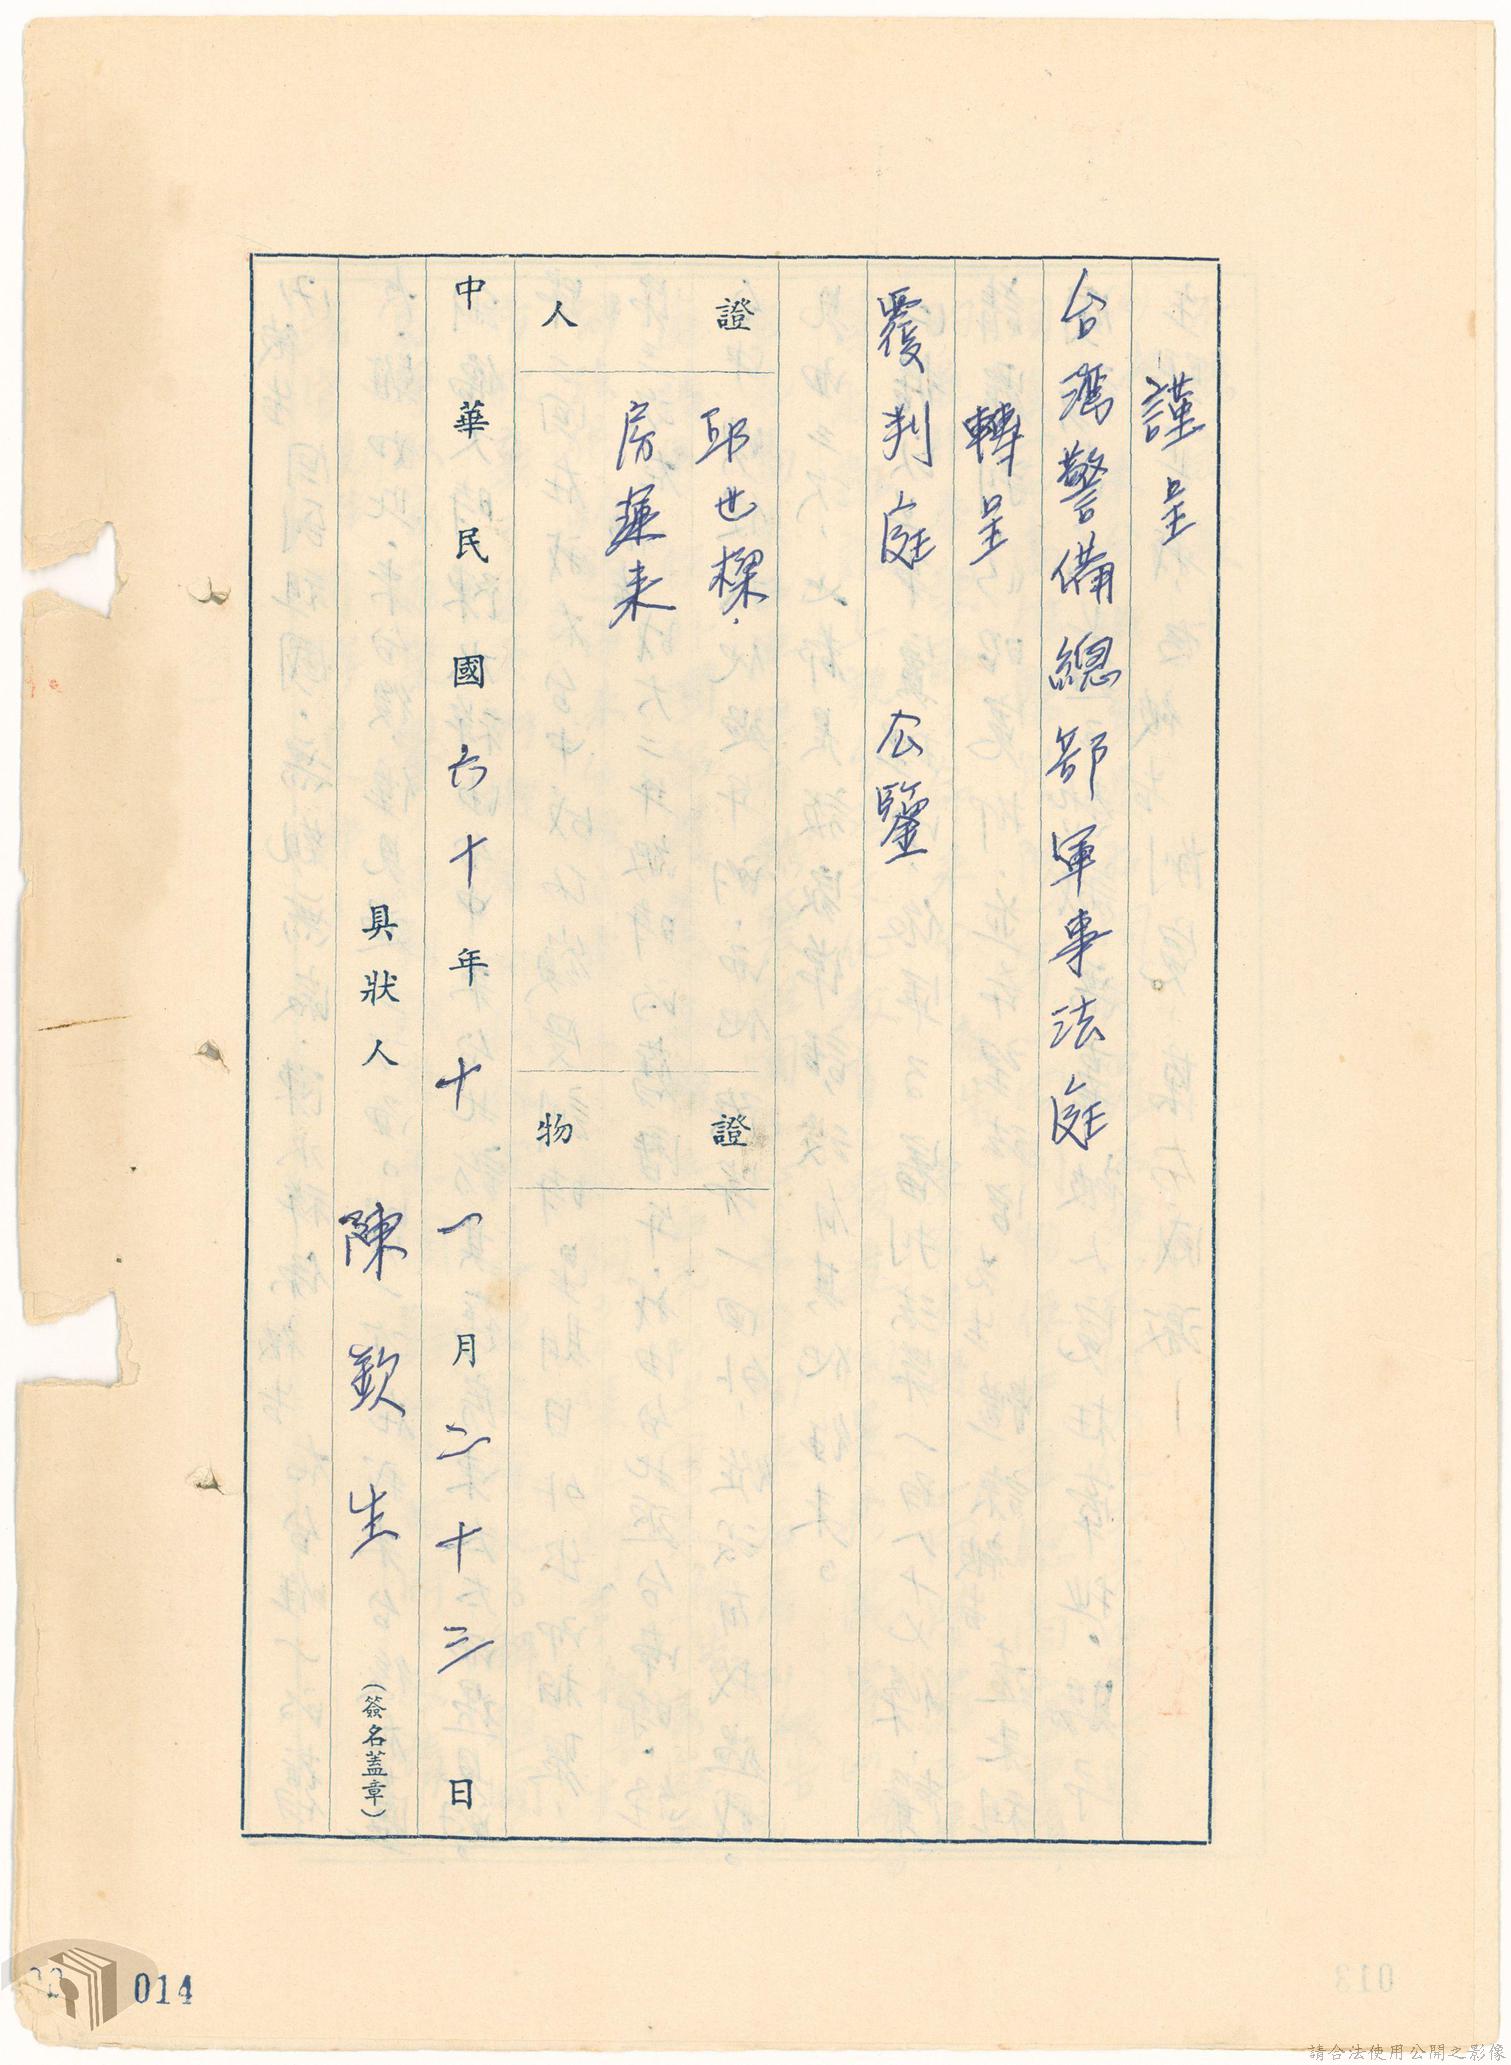 謹呈
台灣警備總部軍事法庭
轉呈
覆判庭　公鑒
證人
邱世樑．
房蓮來
證物
中華民國六十年十一月二十三日
具狀人　陳欽生　（簽名蓋章）
014
請合法使用公開之影像